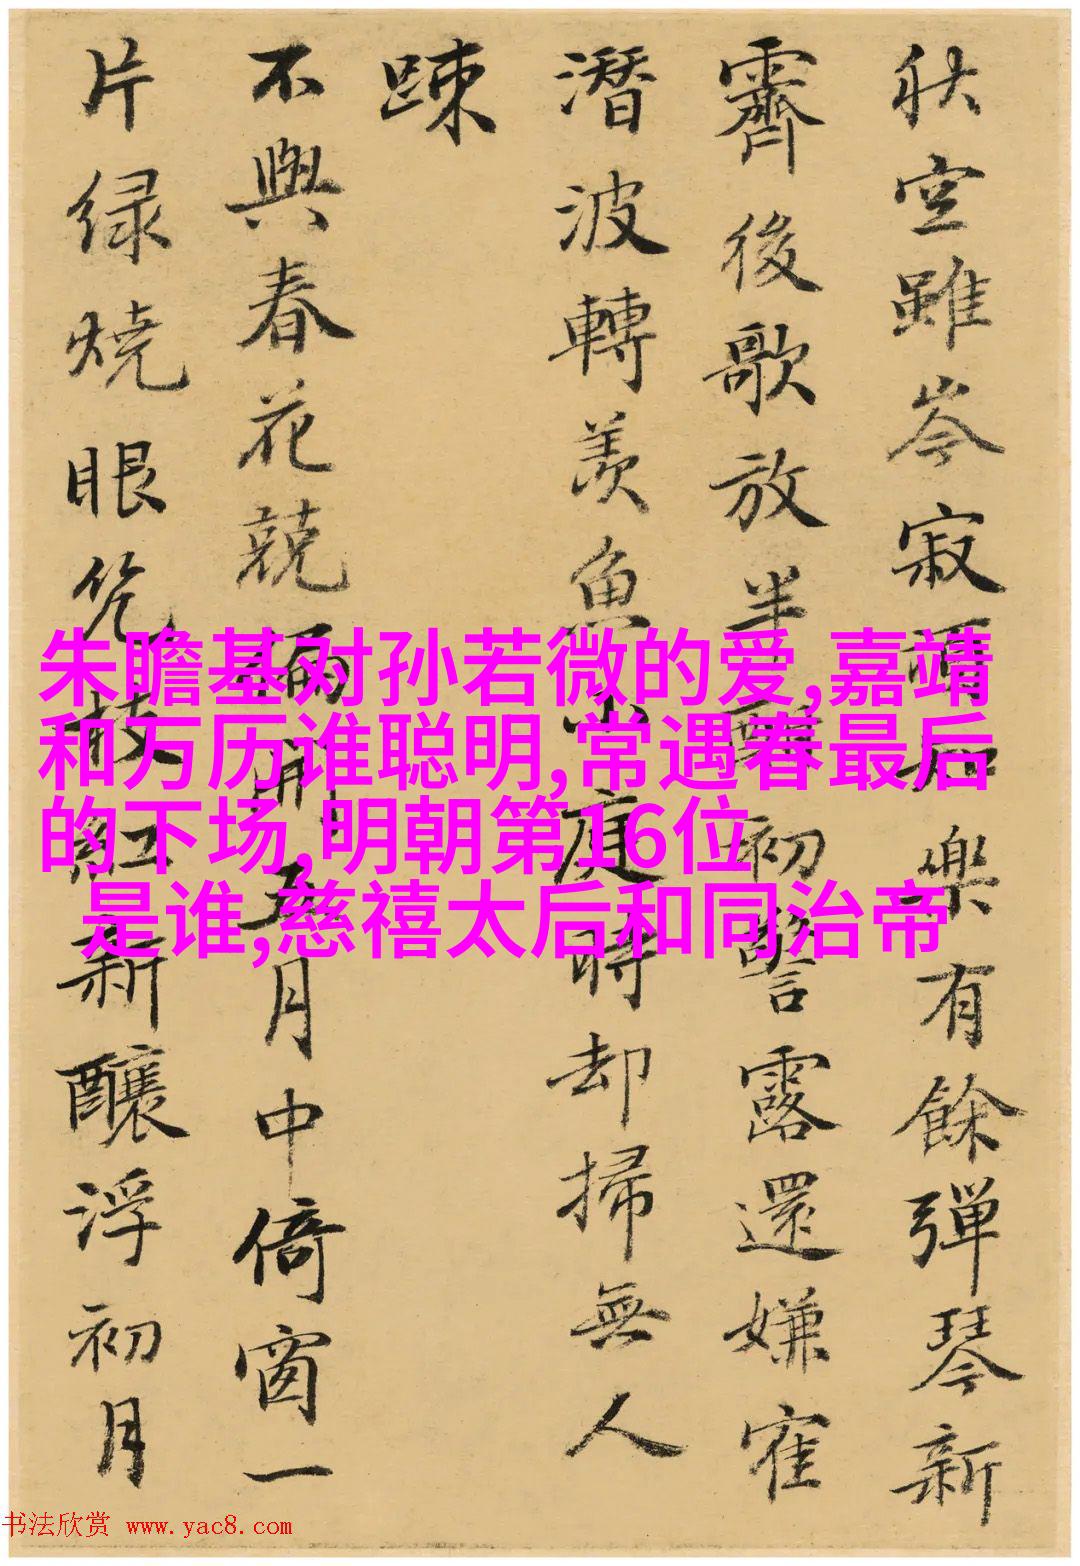 秋空雖岑寂樂有餘彈琴新
霽後歌放半酣初警露還嫌寉
潛波轉羨魚小庭時却掃無人
踈
不與春花競開五月中倚窗一
片绿燒眼幾枝紅新釀浮初月
朱瞻基对孙若微的爱,嘉靖
和万历谁聪明,常遇春最后
的下场,明朝第16位
是谁,慈禧太后和同治帝
书法欣赏 www.yac8.com